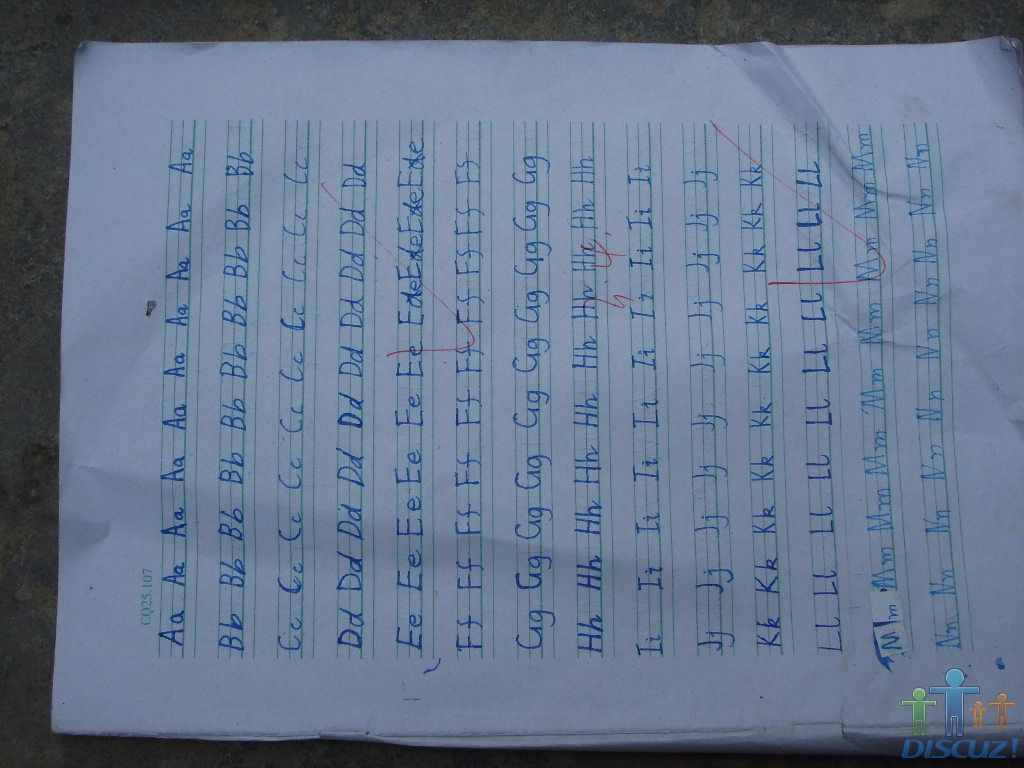 CQ25.107
Aa Aa Aa Aa Aa Aa Aa Aa Aa Aa
Bb Bb Bb Bb Bb Bb Bb Bb Bb Bb Bb
Cc Cc Cc Cc Cc Cc Cc Cc Cc Cc
Dd Dd Dd Dd Dd Dd Dd Dd Dd Dd
Ee Ee Ee Ee Ee Ee
Ff Ff Ff Ff Ff Ff Ff Ff Ff Ff
Gg Gg Gg Gg Gg Gg Gg Gg Gg Gg
Hh Hh Hh Hh Hh Hh Hh Hh Hh Hh
Ii Ii Ii Ii Ii Ii Ii Ii Ii Ii
Jj Jj Jj Jj Jj Jj Jj Jj Jj Jj
Kk Kk Kk Kk Kk Kk Kk Kk Kk Kk
Ll Ll Ll Ll Ll Ll Ll Ll Ll Ll
Mm Mm Mm Mm Mm Mm Mm Mm Mm
Nn Nn Nn Nn Nn Nn Nn Nn Nn Nn
DISCUZ!